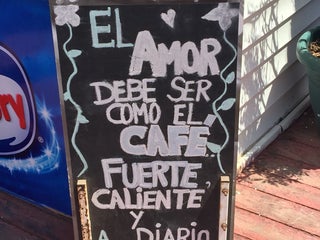 EL
AMOR
DEBE SER
COMO EL
CAFÉ
FUERTE,
CALIENTE
Y
A DIARIO